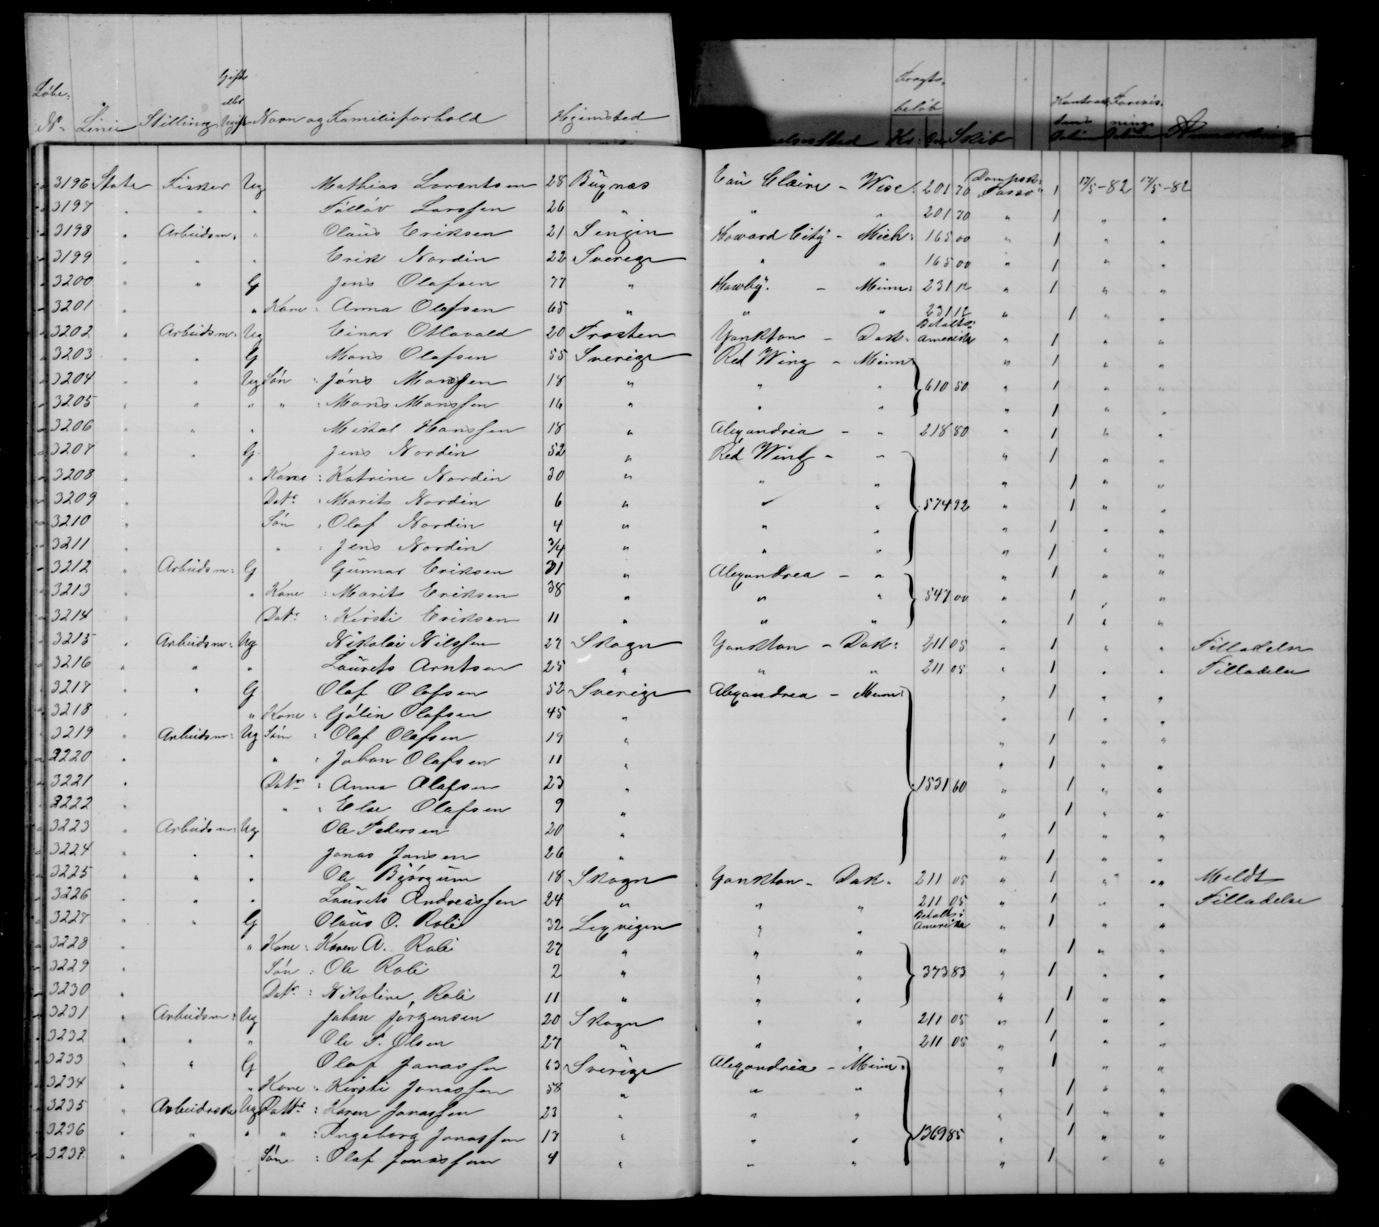 Løbe-
No Linie Stilling Gift eller Ugift Navn og Familieforhold Hjemsted
Fragt-
beløb
Kr. Skib Anmærkning
3196 State Fisker Ug Mathias Lorentsen 28 Bugnæs Eau Claire - Wisc: 201 70 Dampsk: "Tasso" 1 17/5-82 17/5-82
3197 " " Larssen 26 " " " 201 70 " 1 " "
3198 " Arbeidsm: " Olaus Eriksen 21 Senjen Howard City - Mich: 165 00 " 1 " "
3199 " " " Erik Nordin 22 Sverige " " 165 00 " 1 " "
3200 " " G Jens Olafsen 77 " Hawley. - Minn: 231 12 " 1 " "
3201 " " Kone: Anna Olafsen 65 " " " 231 12 " 1 " "
3202 " Arbeidsm: Ug Einar Ottovald 20 Frosten Yankton - Dak: Betalt i Amerika " 1 " "
3203 " " G Mons Olafsen 55 Sverige Red Wing - Minn: " 1 " "
3204 " " Ug Søn: Jöns Monssen 18 " " " 610 50 " 1 " "
3205 " " " " : Mons Monssen 16 " " " " 1 " "
3206 " " " Mikal Hanssen 18 " Alexandria - " 218 80 " 1 " "
3207 " " G. Jens Nordin 52 " Red Wing - " " 1 " "
3208 " " Kone: Katrine Nordin 30 " " " " 1 " "
3209 " Datr: Marits Nordin 6 " " " 574 92 " 1 " "
3210 " Søn: Olaf Nordin 4 " " " " 1 " "
3211 " " : Jens Nordin 3/4 " " " " 1 " "
3212 " Arbeidsm: G Gunnar Eriksen 31 " Alexandrea - " " 1 " "
3213 " " Kone: Marits Eriksen 38 " " " 547 00 " 1 " "
3214 " Datr: Kirsti Eriksen 11 " " " " 1 " "
3215 " Arbeidsm: Ug Nikolai Nilssen 27 Skogn Yankton - Dak: 211 05 " 1 " " Tilladelse
3216 " " " Laurits Arntsen 25 " " " 211 05 " 1 " " Tilladelse
3217 " " G Olaf Olafsen 52 Sverige Alexandrea - Minn: " 1 " "
3218 " " Kone: Gjølin Olafsen 45 " " 1 " "
3219 " Arbeidsm: Ug Søn: Olaf Olafsen 19 " " 1 " "
3220 " " : Johan Olafsen 11 " " 1 " "
3221 " Datr: Anna Olafsen 23 " 1531 60 " 1 " "
3222 " " : Else Olafsen 9 " " 1 " "
3223 " Arbeidsm: Ug Ole Pedersen 20 " " 1 " "
3224 " " " Jonas Jansen 26 " " 1 " "
3225 " " " Ole Bjørgum 18 Skogn Yankton - Dak. 211 05 " 1 " " Meldt
3226 " " " Laurits Andreassen 24 " " " 211 05 " 1 " " Tilladelse
3227 " " G Olaus O. Rolie 32 Lexvigen " " Betalt i Amerika " 1 " "
3228 " " Kone: Karen A. Rolie 27 " " " " 1 " "
3229 " Søn: Ole Rolie 2 " " " 373 83 " 1 " "
3230 " Datr: Nikoline Rolie 11 " " " " 1 " "
3231 " Arbeidsm: Ug Johan Jørgensen 20 Skogn " " 211 05 " 1 " "
3232 " " " Ole P. Olsen 27 " " " 211 05 " 1 " "
3233 " " G Olaf Jonassen 63 Sverige Alexandria - Minn: " 1 " "
3234 " " Kone: Kirsti Jonassen 58 " " " " 1 " "
3235 " Arbeidsske Ug Dattr: Karen Jonassen 23 " " " " 1 " "
3236 " " " " : Ingeborg Jonassen 13 " " " 1369 85 " 1 " "
3237 " Søn: Olaf Jonassen 4 " " " " 1 " "